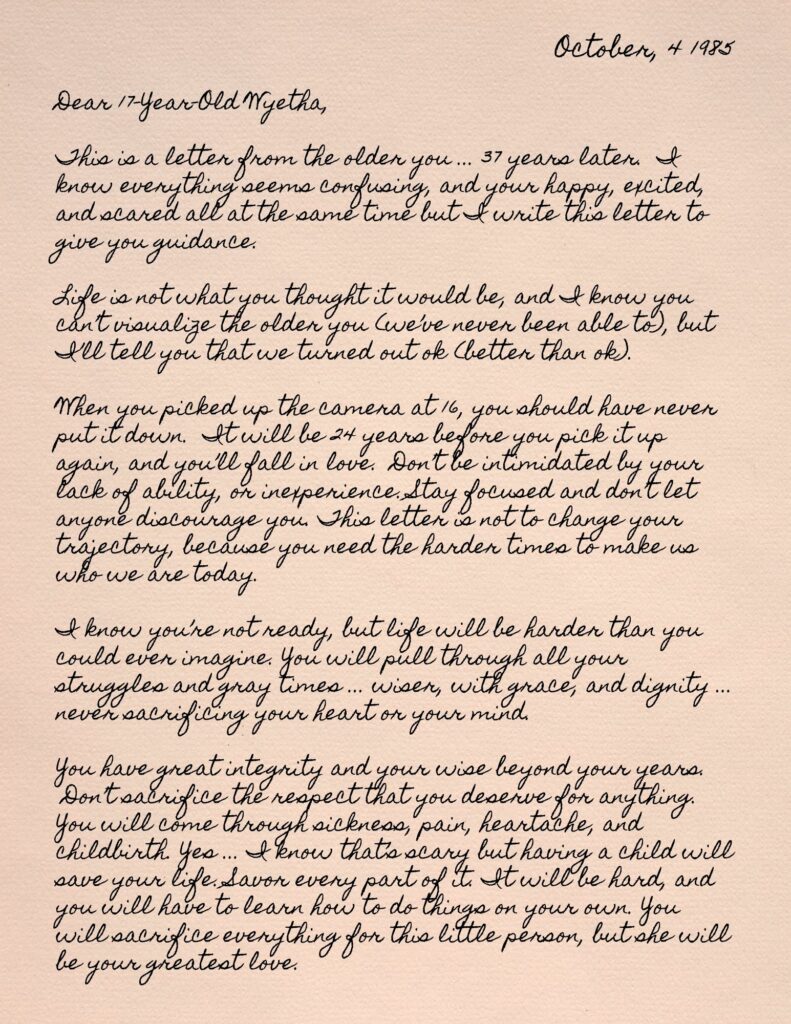 October, 4 1985
Dear 17-Year-Old Wyetha,
This is a letter from the older you ... 37 years later. I
know everything seems confusing, and your happy, excited,
and scared all at the same time but I write this letter to
give you guidance.
Life is not what you thought it would be, and I know you
can't visualize the older you (we've never been able to), but
I'll tell you that we turned out ok (better than ok).
When you picked up the camera at 16, you should have never
put it down. It will be 24 years before you pick it up
again, and you'll fall in love. Don't be intimidated by your
lack of ability, or inexperience. Stay focused and don't let
anyone discourage you. This letter is not to change your
trajectory, because you need the harder times to make us
who we are today.
I know you're not ready, but life will be harder than you
could ever imagine. You will pull through all your
struggles and gray times ... wiser, with grace, and dignity ...
never sacrificing your heart or your mind.
You have great integrity and your wise beyond your years.
Don't sacrifice the respect that you deserve for anything.
You will come through sickness, pain, heartache, and
childbirth. Yes ... I know that's scary but having a child will
save your life. Savor every part of it. It will be hard, and
you will have to learn how to do things on your own. You
will sacrifice everything for this little person, but she will
be your greatest love.